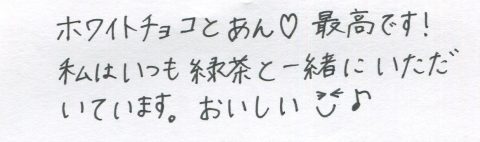 ホワイトチョコとあん♡最高です!
私はいつも緑茶と一緒にいただ
いています。おいしい♪